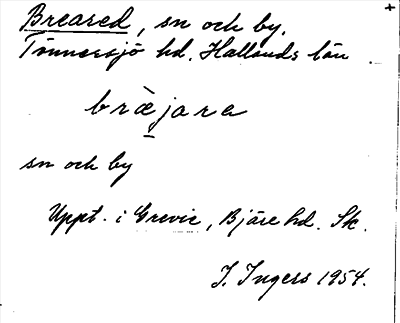 Breared, sn och by.
Tönnersjö hd. Hallands län
bræ̀jara
sn och by
Uppt. i Grevie, Bjäre hd. Sk.
I. Ingers 1954.